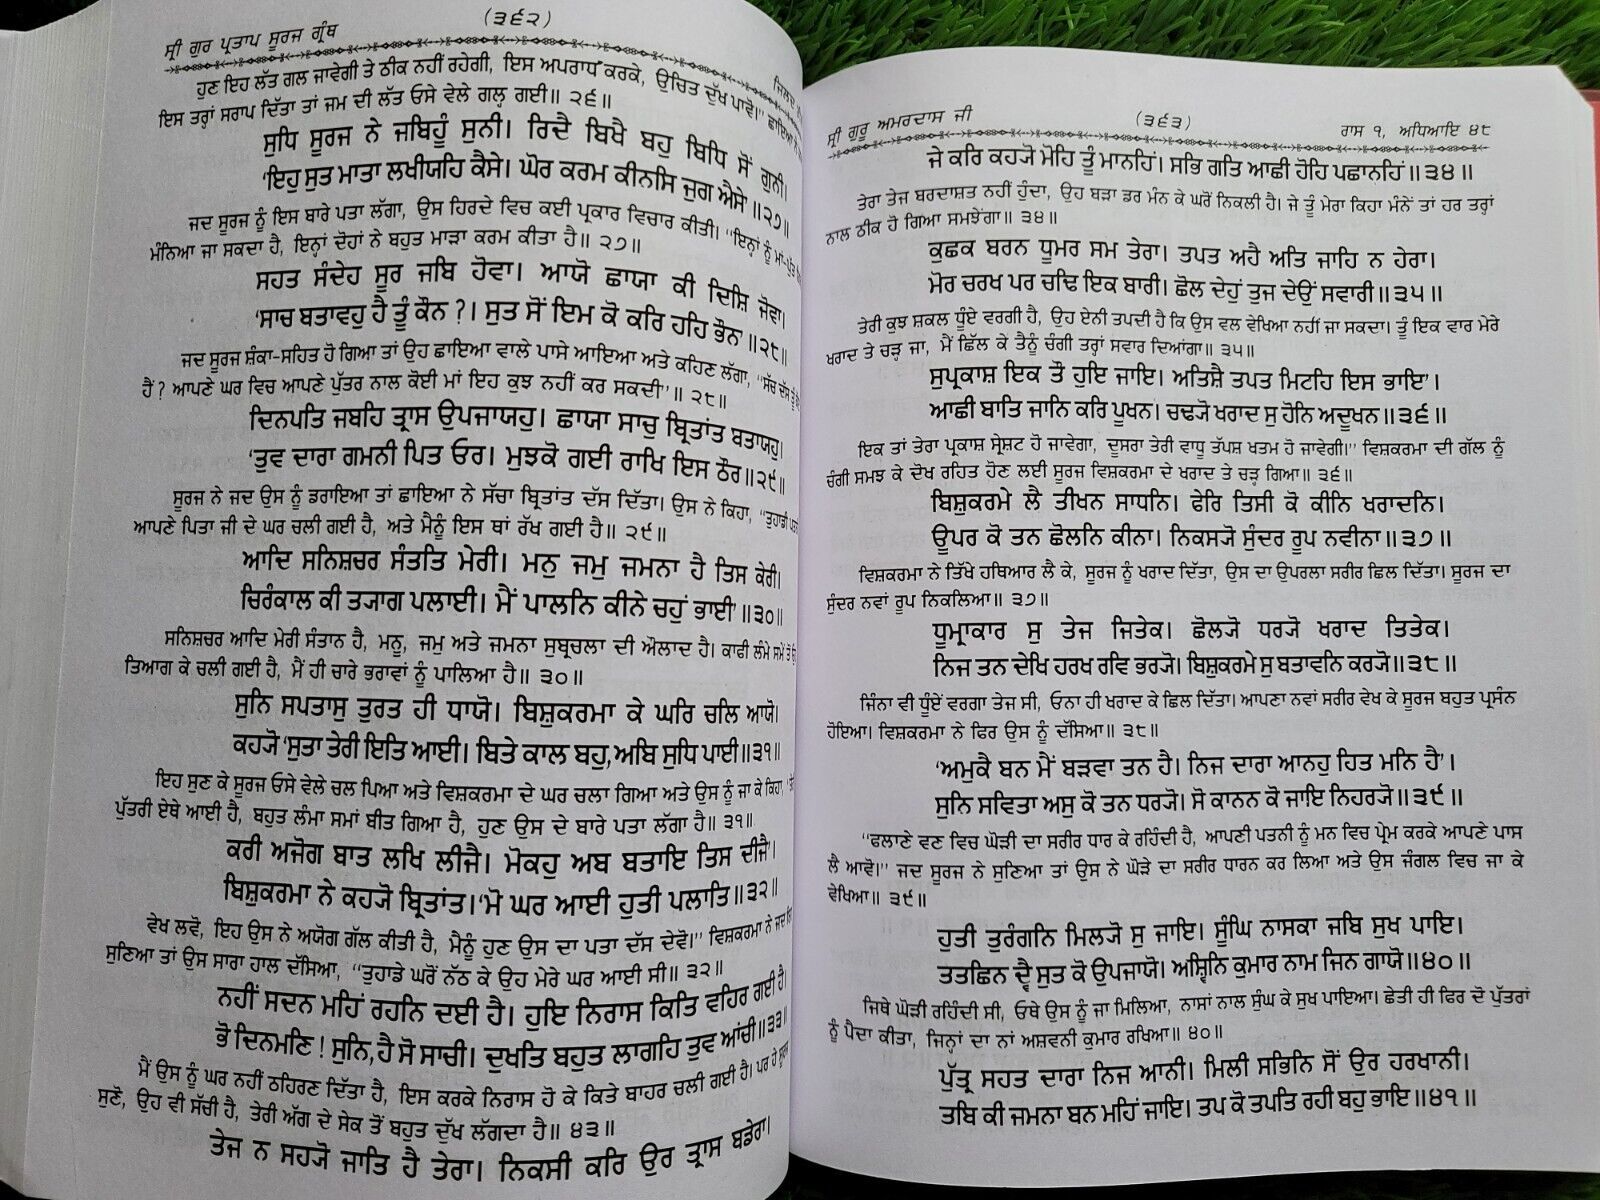 (੩੬੨)
ਸ੍ਰੀ ਗੁਰ ਪ੍ਰਤਾਪ ਸੂਰਜ ਗ੍ਰੰਥ
ਜਿਲਦ
ਹੁਣ ਇਹ ਲੱਤ ਗਲ ਜਾਵੇਗੀ ਤੇ ਠੀਕ ਨਹੀਂ ਰਹੇਗੀ, ਇਸ ਅਪਰਾਧ ਕਰਕੇ, ਉਚਿਤ ਦੁੱਖ ਪਾਵੋ।” ਛਾਇਆ ਨੇ
ਇਸ ਤਰ੍ਹਾਂ ਸਰਾਪ ਦਿੱਤਾ ਤਾਂ ਜਮ ਦੀ ਲੱਤ ਓਸੇ ਵੇਲੇ ਗਲ੍ਹ ਗਈ॥ ੨੬॥
ਸੁਧਿ ਸੂਰਜ ਨੇ ਜਬਿਹੂੰ ਸੁਨੀ। ਰਿਦੈ ਬਿਖੈ ਬਹੁ ਬਿਧਿ ਸੋਂ ਗੁਨੀ।
‘ਇਹੁ ਸੁਤ ਮਾਤਾ ਲਖੀਯਹਿ ਕੈਸੇ। ਘੋਰ ਕਰਮ ਕੀਨਸਿ ਜੁਗ ਐਸੇ’॥੨੭॥
ਜਦ ਸੂਰਜ ਨੂੰ ਇਸ ਬਾਰੇ ਪਤਾ ਲੱਗਾ, ਉਸ ਹਿਰਦੇ ਵਿਚ ਕਈ ਪ੍ਰਕਾਰ ਵਿਚਾਰ ਕੀਤੀ। “ਇਨ੍ਹਾਂ ਨੂੰ ਮਾਂ-ਪੁੱਤ
ਮੰਨਿਆ ਜਾ ਸਕਦਾ ਹੈ, ਇਨ੍ਹਾਂ ਦੋਹਾਂ ਨੇ ਬਹੁਤ ਮਾੜਾ ਕਰਮ ਕੀਤਾ ਹੈ॥ ੨੭॥
ਸਹਤ ਸੰਦੇਹ ਸੂਰ ਜਬਿ ਹੋਵਾ। ਆਯੋ ਛਾਯਾ ਕੀ ਦਿਸ਼ਿ ਜੋਵਾ।
‘ਸਾਚ ਬਤਾਵਹੁ ਹੈ ਤੂੰ ਕੌਨ ?। ਸੁਤ ਸੋਂ ਇਮ ਕੋ ਕਰਿ ਹਹਿ ਭੌਨ’॥੨੮॥
ਜਦ ਸੂਰਜ ਸ਼ੰਕਾ-ਸਹਿਤ ਹੋ ਗਿਆ ਤਾਂ ਉਹ ਛਾਇਆ ਵਾਲੇ ਪਾਸੇ ਆਇਆ ਅਤੇ ਕਹਿਣ ਲੱਗਾ, “ਸੱਚ ਦੱਸ ਤੂੰ
ਹੈਂ ? ਆਪਣੇ ਘਰ ਵਿਚ ਆਪਣੇ ਪੁੱਤਰ ਨਾਲ ਕੋਈ ਮਾਂ ਇਹ ਕੁਝ ਨਹੀਂ ਕਰ ਸਕਦੀ”॥ ੨੮॥
ਦਿਨਪਤਿ ਜਬਹਿ ਤ੍ਰਾਸ ਉਪਜਾਯਹੁ। ਛਾਯਾ ਸਾਚੁ ਬ੍ਰਿਤਾਂਤ ਬਤਾਯਹੁ।
‘ਤੁਵ ਦਾਰਾ ਗਮਨੀ ਪਿਤ ਓਰ। ਮੁਝਕੋ ਗਈ ਰਾਖਿ ਇਸ ਠੌਰ॥੨੯॥
ਸੂਰਜ ਨੇ ਜਦ ਉਸ ਨੂੰ ਡਰਾਇਆ ਤਾਂ ਛਾਇਆ ਨੇ ਸੱਚਾ ਬ੍ਰਿਤਾਂਤ ਦੱਸ ਦਿੱਤਾ। ਉਸ ਨੇ ਕਿਹਾ, “ਤੁਹਾਡੀ
ਆਪਣੇ ਪਿਤਾ ਜੀ ਦੇ ਘਰ ਚਲੀ ਗਈ ਹੈ, ਅਤੇ ਮੈਨੂੰ ਇਸ ਥਾਂ ਰੱਖ ਗਈ ਹੈ॥ ੨੯॥
ਆਦਿ ਸਨਿਸ਼ਚਰ ਸੰਤਤਿ ਮੇਰੀ। ਮਨੁ ਜਮੁ ਜਮਨਾ ਹੈ ਤਿਸ ਕੇਰੀ।
ਚਿਰੰਕਾਲ ਕੀ ਤ੍ਯਾਗ ਪਲਾਈ। ਮੈਂ ਪਾਲਨਿ ਕੀਨੇ ਚਹੁਂ ਭਾਈ’॥੩੦॥
ਸਨਿਸ਼ਚਰ ਆਦਿ ਮੇਰੀ ਸੰਤਾਨ ਹੈ, ਮਨੂ, ਜਮੁ ਅਤੇ ਜਮਨਾ ਸੁਬ੍ਰਚਲਾ ਦੀ ਔਲਾਦ ਹੈ। ਕਾਫੀ ਲੰਮੇ ਸਮੇਂ ਤੋਂ
ਤਿਆਗ ਕੇ ਚਲੀ ਗਈ ਹੈ, ਮੈਂ ਹੀ ਚਾਰੇ ਭਰਾਵਾਂ ਨੂੰ ਪਾਲਿਆ ਹੈ॥ ੩੦॥
ਸੁਨਿ ਸਪਤਾਸੁ ਤੁਰਤ ਹੀ ਧਾਯੋ। ਬਿਸ਼ੁਕਰਮਾ ਕੇ ਘਰਿ ਚਲਿ ਆਯੋ।
ਕਹ੍ਯੋ ‘ਸੁਤਾ ਤੇਰੀ ਇਤਿ ਆਈ। ਬਿਤੇ ਕਾਲ ਬਹੁ, ਅਬਿ ਸੁਧਿ ਪਾਈ॥੩੧॥
ਇਹ ਸੁਣ ਕੇ ਸੂਰਜ ਓਸੇ ਵੇਲੇ ਚਲ ਪਿਆ ਅਤੇ ਵਿਸ਼ਕਰਮਾ ਦੇ ਘਰ ਚਲਾ ਗਿਆ ਅਤੇ ਉਸ ਨੂੰ ਜਾ ਕੇ ਕਿਹਾ,
ਪੁੱਤਰੀ ਏਥੇ ਆਈ ਹੈ, ਬਹੁਤ ਲੰਮਾ ਸਮਾਂ ਬੀਤ ਗਿਆ ਹੈ, ਹੁਣ ਉਸ ਦੇ ਬਾਰੇ ਪਤਾ ਲੱਗਾ ਹੈ॥ ੩੧॥
ਕਰੀ ਅਜੋਗ ਬਾਤ ਲਖਿ ਲੀਜੈ। ਮੋਕਹੁ ਅਬ ਬਤਾਇ ਤਿਸ ਦੀਜੈ’।
ਬਿਸ਼ੁਕਰਮਾ ਨੇ ਕਹ੍ਯੋ ਬ੍ਰਿਤਾਂਤ। ‘ਮੋ ਘਰ ਆਈ ਹੁਤੀ ਪਲਾਤਿ॥੩੨॥
ਵੇਖ ਲਵੋ, ਇਹ ਉਸ ਨੇ ਅਯੋਗ ਗੱਲ ਕੀਤੀ ਹੈ, ਮੈਨੂੰ ਹੁਣ ਉਸ ਦਾ ਪਤਾ ਦੱਸ ਦੇਵੋ।” ਵਿਸ਼ਕਰਮਾ ਨੇ ਜਦ
ਸੁਣਿਆ ਤਾਂ ਉਸ ਸਾਰਾ ਹਾਲ ਦੱਸਿਆ, “ਤੁਹਾਡੇ ਘਰੋਂ ਨੱਠ ਕੇ ਉਹ ਮੇਰੇ ਘਰ ਆਈ ਸੀ॥ ੩੨॥
ਨਹੀਂ ਸਦਨ ਮਹਿਂ ਰਹਨਿ ਦਈ ਹੈ। ਹੁਇ ਨਿਰਾਸ ਕਿਤਿ ਵਹਿਰ ਗਈ ਹੈ।
ਭੋ ਦਿਨਮਣਿ ! ਸੁਨਿ, ਹੈ ਸੋ ਸਾਚੀ। ਦੁਖਤਿ ਬਹੁਤ ਲਾਗਹਿ ਤੁਵ ਆਂਚੀ॥੩੩॥
ਮੈਂ ਉਸ ਨੂੰ ਘਰ ਨਹੀਂ ਠਹਿਰਣ ਦਿੱਤਾ ਹੈ, ਇਸ ਕਰਕੇ ਨਿਰਾਸ ਹੋ ਕੇ ਕਿਤੇ ਬਾਹਰ ਚਲੀ ਗਈ ਹੈ। ਪਰ ਹੇ ਸੂਰਜ
ਸੁਣੋ, ਉਹ ਵੀ ਸੱਚੀ ਹੈ, ਤੇਰੀ ਅੱਗ ਦੇ ਸੇਕ ਤੋਂ ਬਹੁਤ ਦੁੱਖ ਲੱਗਦਾ ਹੈ॥ ੪੩॥
ਤੇਜ ਨ ਸਹ੍ਯੋ ਜਾਤਿ ਹੈ ਤੇਰਾ। ਨਿਕਸੀ ਕਰਿ ਉਰ ਤ੍ਰਾਸ ਬਡੇਰਾ।
ਸ੍ਰੀ ਗੁਰੂ ਅਮਰਦਾਸ ਜੀ
(੩੬੩)
ਰਾਸ ੧, ਅਧਿਆਇ ੪੮
ਜੇ ਕਰਿ ਕਹ੍ਯੋ ਮੋਹਿ ਤੂੰ ਮਾਨਹਿਂ। ਸਭਿ ਗਤਿ ਆਛੀ ਹੋਹਿ ਪਛਾਨਹਿਂ॥੩੪॥
ਤੇਰਾ ਤੇਜ ਬਰਦਾਸ਼ਤ ਨਹੀਂ ਹੁੰਦਾ, ਉਹ ਬੜਾ ਡਰ ਮੰਨ ਕੇ ਘਰੋਂ ਨਿਕਲੀ ਹੈ। ਜੇ ਤੂੰ ਮੇਰਾ ਕਿਹਾ ਮੰਨੇਂ ਤਾਂ ਹਰ ਤਰ੍ਹਾਂ
ਨਾਲ ਠੀਕ ਹੋ ਗਿਆ ਸਮਝੇਂਗਾ॥ ੩੪॥
ਕੁਛਕ ਬਰਨ ਧੂਮਰ ਸਮ ਤੇਰਾ। ਤਪਤ ਅਹੈ ਅਤਿ ਜਾਹਿ ਨ ਹੇਰਾ।
ਮੋਰ ਚਰਖ ਪਰ ਚਢਿ ਇਕ ਬਾਰੀ। ਛੋਲ ਦੇਹੁਂ ਤੁਜ ਦੇਉਂ ਸਵਾਰੀ॥੩੫॥
ਤੇਰੀ ਕੁਝ ਸ਼ਕਲ ਧੂੰਏਂ ਵਰਗੀ ਹੈ, ਉਹ ਏਨੀ ਤਪਦੀ ਹੈ ਕਿ ਉਸ ਵਲ ਵੇਖਿਆ ਨਹੀਂ ਜਾ ਸਕਦਾ। ਤੂੰ ਇਕ ਵਾਰ ਮੇਰੇ
ਖਰਾਦ ਤੇ ਚੜ੍ਹ ਜਾ, ਮੈਂ ਛਿੱਲ ਕੇ ਤੈਨੂੰ ਚੰਗੀ ਤਰ੍ਹਾਂ ਸਵਾਰ ਦਿਆਂਗਾ॥ ੩੫॥
ਸੁਪ੍ਰਕਾਸ਼ ਇਕ ਤੌ ਹੁਇ ਜਾਇ। ਅਤਿਸ਼ੈ ਤਪਤ ਮਿਟਹਿ ਇਸ ਭਾਇ’।
ਆਛੀ ਬਾਤਿ ਜਾਨਿ ਕਰਿ ਪੂਖਨ। ਚਢ੍ਯੋ ਖਰਾਦ ਸੁ ਹੋਨਿ ਅਦੂਖਨ॥੩੬॥
ਇਕ ਤਾਂ ਤੇਰਾ ਪ੍ਰਕਾਸ਼ ਸ੍ਰੇਸ਼ਟ ਹੋ ਜਾਵੇਗਾ, ਦੂਸਰਾ ਤੇਰੀ ਵਾਧੂ ਤੱਪਸ਼ ਖਤਮ ਹੋ ਜਾਵੇਗੀ।” ਵਿਸ਼ਕਰਮਾ ਦੀ ਗੱਲ ਨੂੰ
ਚੰਗੀ ਸਮਝ ਕੇ ਦੋਖ ਰਹਿਤ ਹੋਣ ਲਈ ਸੂਰਜ ਵਿਸ਼ਕਰਮਾ ਦੇ ਖਰਾਦ ਤੇ ਚੜ੍ਹ ਗਿਆ॥ ੩੬॥
ਬਿਸ਼ੁਕਰਮੇ ਲੈ ਤੀਖਨ ਸਾਧਨਿ। ਫੇਰਿ ਤਿਸੀ ਕੋ ਕੀਨਿ ਖਰਾਦਨਿ।
ਊਪਰ ਕੋ ਤਨ ਛੋਲਨਿ ਕੀਨਾ। ਨਿਕਸ੍ਯੋ ਸੁੰਦਰ ਰੂਪ ਨਵੀਨਾ॥੩੭॥
ਵਿਸ਼ਕਰਮਾ ਨੇ ਤਿੱਖੇ ਹਥਿਆਰ ਲੈ ਕੇ, ਸੂਰਜ ਨੂੰ ਖਰਾਦ ਦਿੱਤਾ, ਉਸ ਦਾ ਉਪਰਲਾ ਸਰੀਰ ਛਿਲ ਦਿੱਤਾ। ਸੂਰਜ ਦਾ
ਸੁੰਦਰ ਨਵਾਂ ਰੂਪ ਨਿਕਲਿਆ॥ ੩੭॥
ਧੂਮ੍ਰਾਕਾਰ ਸੁ ਤੇਜ ਜਿਤੇਕ। ਛੋਲ੍ਯੋ ਧਰ੍ਯੋ ਖਰਾਦ ਤਿਤੇਕ।
ਨਿਜ ਤਨ ਦੇਖਿ ਹਰਖ ਰਵਿ ਭਰ੍ਯੋ। ਬਿਸ਼ੁਕਰਮੇ ਸੁ ਬਤਾਵਨਿ ਕਰ੍ਯੋ॥੩੮॥
ਜਿੰਨਾ ਵੀ ਧੂੰਏਂ ਵਰਗਾ ਤੇਜ ਸੀ, ਓਨਾ ਹੀ ਖਰਾਦ ਕੇ ਛਿਲ ਦਿੱਤਾ। ਆਪਣਾ ਨਵਾਂ ਸਰੀਰ ਵੇਖ ਕੇ ਸੂਰਜ ਬਹੁਤ ਪ੍ਰਸੰਨ
ਹੋਇਆ। ਵਿਸ਼ਕਰਮਾ ਨੇ ਫਿਰ ਉਸ ਨੂੰ ਦੱਸਿਆ॥ ੩੮॥
‘ਅਮੁਕੈ ਬਨ ਮੈਂ ਬੜਵਾ ਤਨ ਹੈ। ਨਿਜ ਦਾਰਾ ਆਨਹੁ ਹਿਤ ਮਨਿ ਹੈ’।
ਸੁਨਿ ਸਵਿਤਾ ਅਸੁ ਕੋ ਤਨ ਧਰ੍ਯੋ। ਸੋ ਕਾਨਨ ਕੋ ਜਾਇ ਨਿਹਰ੍ਯੋ॥੩੯॥
“ਫਲਾਣੇ ਵਣ ਵਿਚ ਘੋੜੀ ਦਾ ਸਰੀਰ ਧਾਰ ਕੇ ਰਹਿੰਦੀ ਹੈ, ਆਪਣੀ ਪਤਨੀ ਨੂੰ ਮਨ ਵਿਚ ਪ੍ਰੇਮ ਕਰਕੇ ਆਪਣੇ ਪਾਸ
ਲੈ ਆਵੋ।” ਜਦ ਸੂਰਜ ਨੇ ਸੁਣਿਆ ਤਾਂ ਉਸ ਨੇ ਘੋੜੇ ਦਾ ਸਰੀਰ ਧਾਰਨ ਕਰ ਲਿਆ ਅਤੇ ਉਸ ਜੰਗਲ ਵਿਚ ਜਾ ਕੇ
ਵੇਖਿਆ॥ ੩੯॥
ਹੁਤੀ ਤੁਰੰਗਨਿ ਮਿਲ੍ਯੋ ਸੁ ਜਾਇ। ਸੂੰਘਿ ਨਾਸਕਾ ਜਬਿ ਸੁਖ ਪਾਇ।
ਤਤਛਿਨ ਦ੍ਵੈ ਸੁਤ ਕੋ ਉਪਜਾਯੋ। ਅਸ਼੍ਵਿਨਿ ਕੁਮਾਰ ਨਾਮ ਜਿਨ ਗਾਯੋ॥੪੦॥
ਜਿਥੇ ਘੋੜੀ ਰਹਿੰਦੀ ਸੀ, ਓਥੇ ਉਸ ਨੂੰ ਜਾ ਮਿਲਿਆ, ਨਾਸਾਂ ਨਾਲ ਸੁੰਘ ਕੇ ਸੁਖ ਪਾਇਆ। ਛੇਤੀ ਹੀ ਫਿਰ ਦੋ ਪੁੱਤਰਾਂ
ਨੂੰ ਪੈਦਾ ਕੀਤਾ, ਜਿਨ੍ਹਾਂ ਦਾ ਨਾਂ ਅਸ਼ਵਨੀ ਕੁਮਾਰ ਰਖਿਆ॥ ੪੦॥
ਪੁੱਤ੍ਰ ਸਹਤ ਦਾਰਾ ਨਿਜ ਆਨੀ। ਮਿਲੀ ਸਭਿਨਿ ਸੋਂ ਉਰ ਹਰਖਾਨੀ।
ਤਬਿ ਕੀ ਜਮਨਾ ਬਨ ਮਹਿਂ ਜਾਇ। ਤਪ ਕੋ ਤਪਤਿ ਰਹੀ ਬਹੁ ਭਾਇ॥੪੧॥